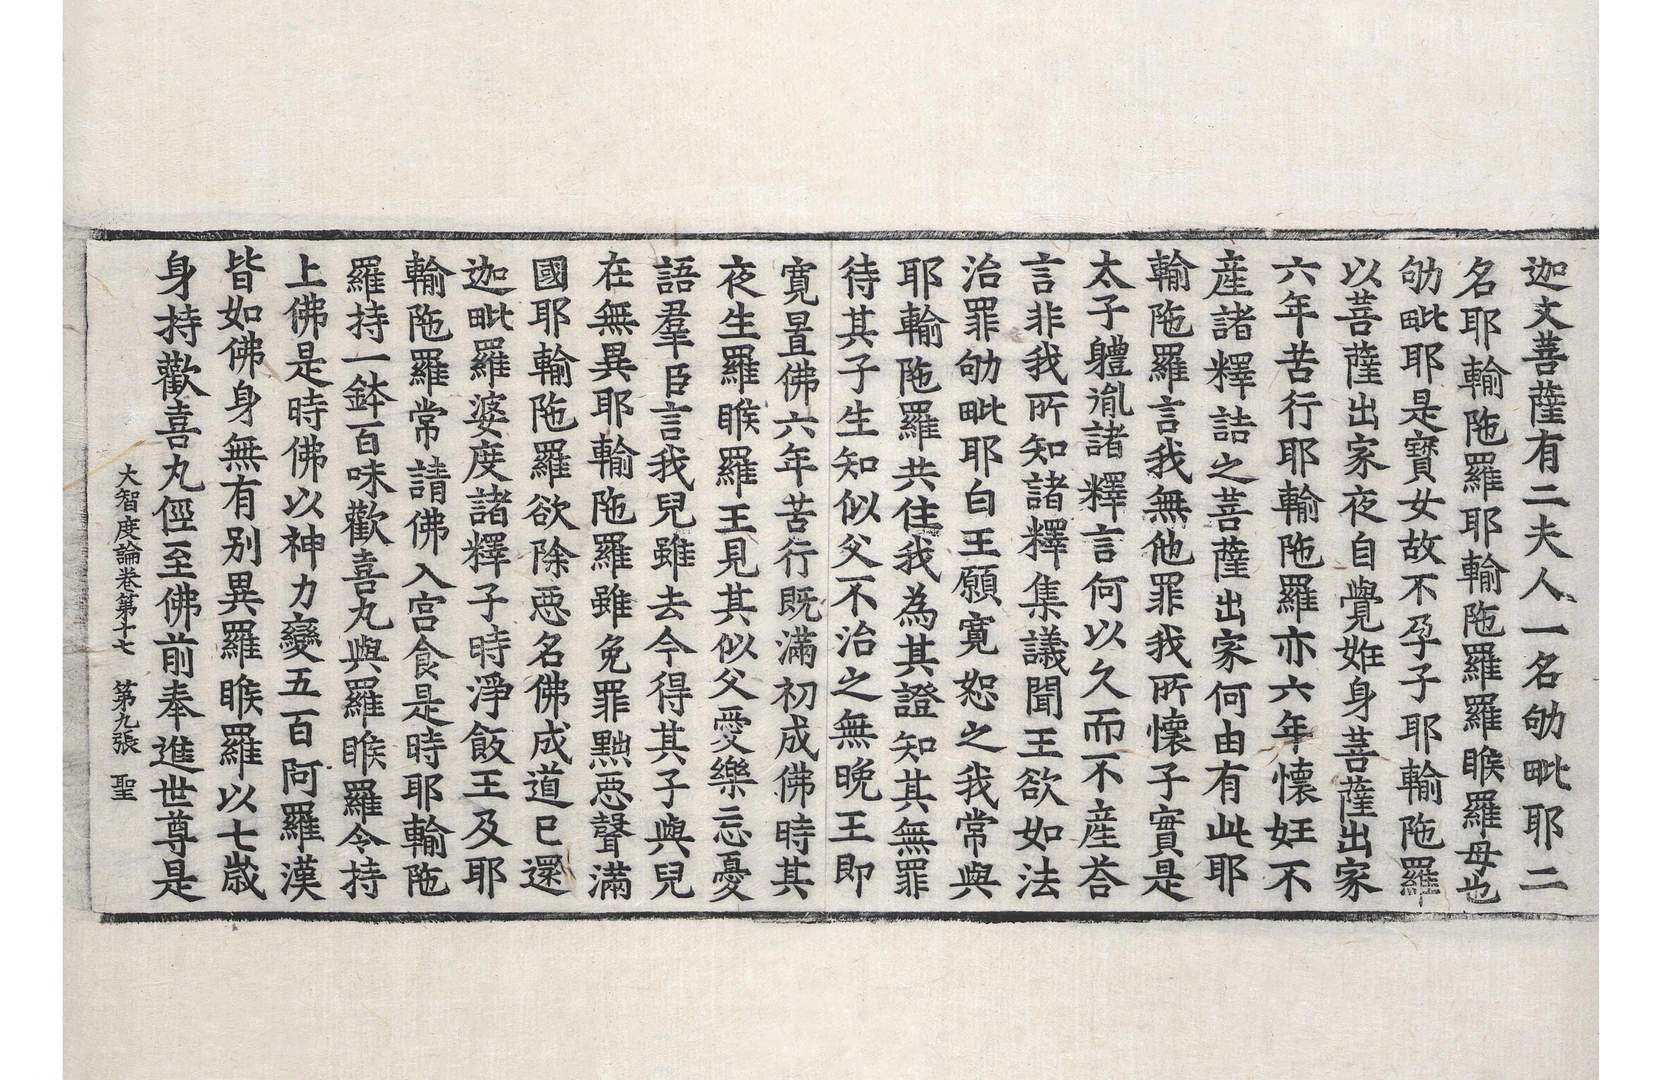 迦文菩薩有二夫人一名劬毗耶二
名耶輸陁羅耶輸陁羅羅睺羅母也
劬毗耶是寶女故不孕子耶輸陁羅
以菩薩出家夜自覺妊身菩薩出家
六年苦行耶輸陁羅亦六年懷妊不
産諸釋詰之菩薩出家何由有此耶
輸陁羅言我無他罪我所懷子實是
太子體胤諸釋言何以久而不産荅
言非我所知諸釋集議聞王欲如法
治罪劬毗耶白王願寬恕之我常與
耶輸陁羅共住我為其證知其無罪
待其子生知似父不治之無晚王即
寬置佛六年苦行既滿初成佛時其
夜生羅睺羅王見其似父愛樂忘憂
語羣臣言我兒雖去今得其子與兒
在無異耶輸陁羅雖免罪黜惡聲滿
國耶輸陁羅欲除惡名佛成道已還
迦毗羅婆度諸釋子時淨飯王及耶
輸陁羅常請佛入宮食是時耶輸陁
羅持一鉢百味歡喜丸與羅睺羅令持
上佛是時佛以神力變五百阿羅漢
皆如佛身無有別異羅睺羅以七歲
身持歡喜丸徑至佛前奉進世尊是
大智度論卷第十七 第九張 聖